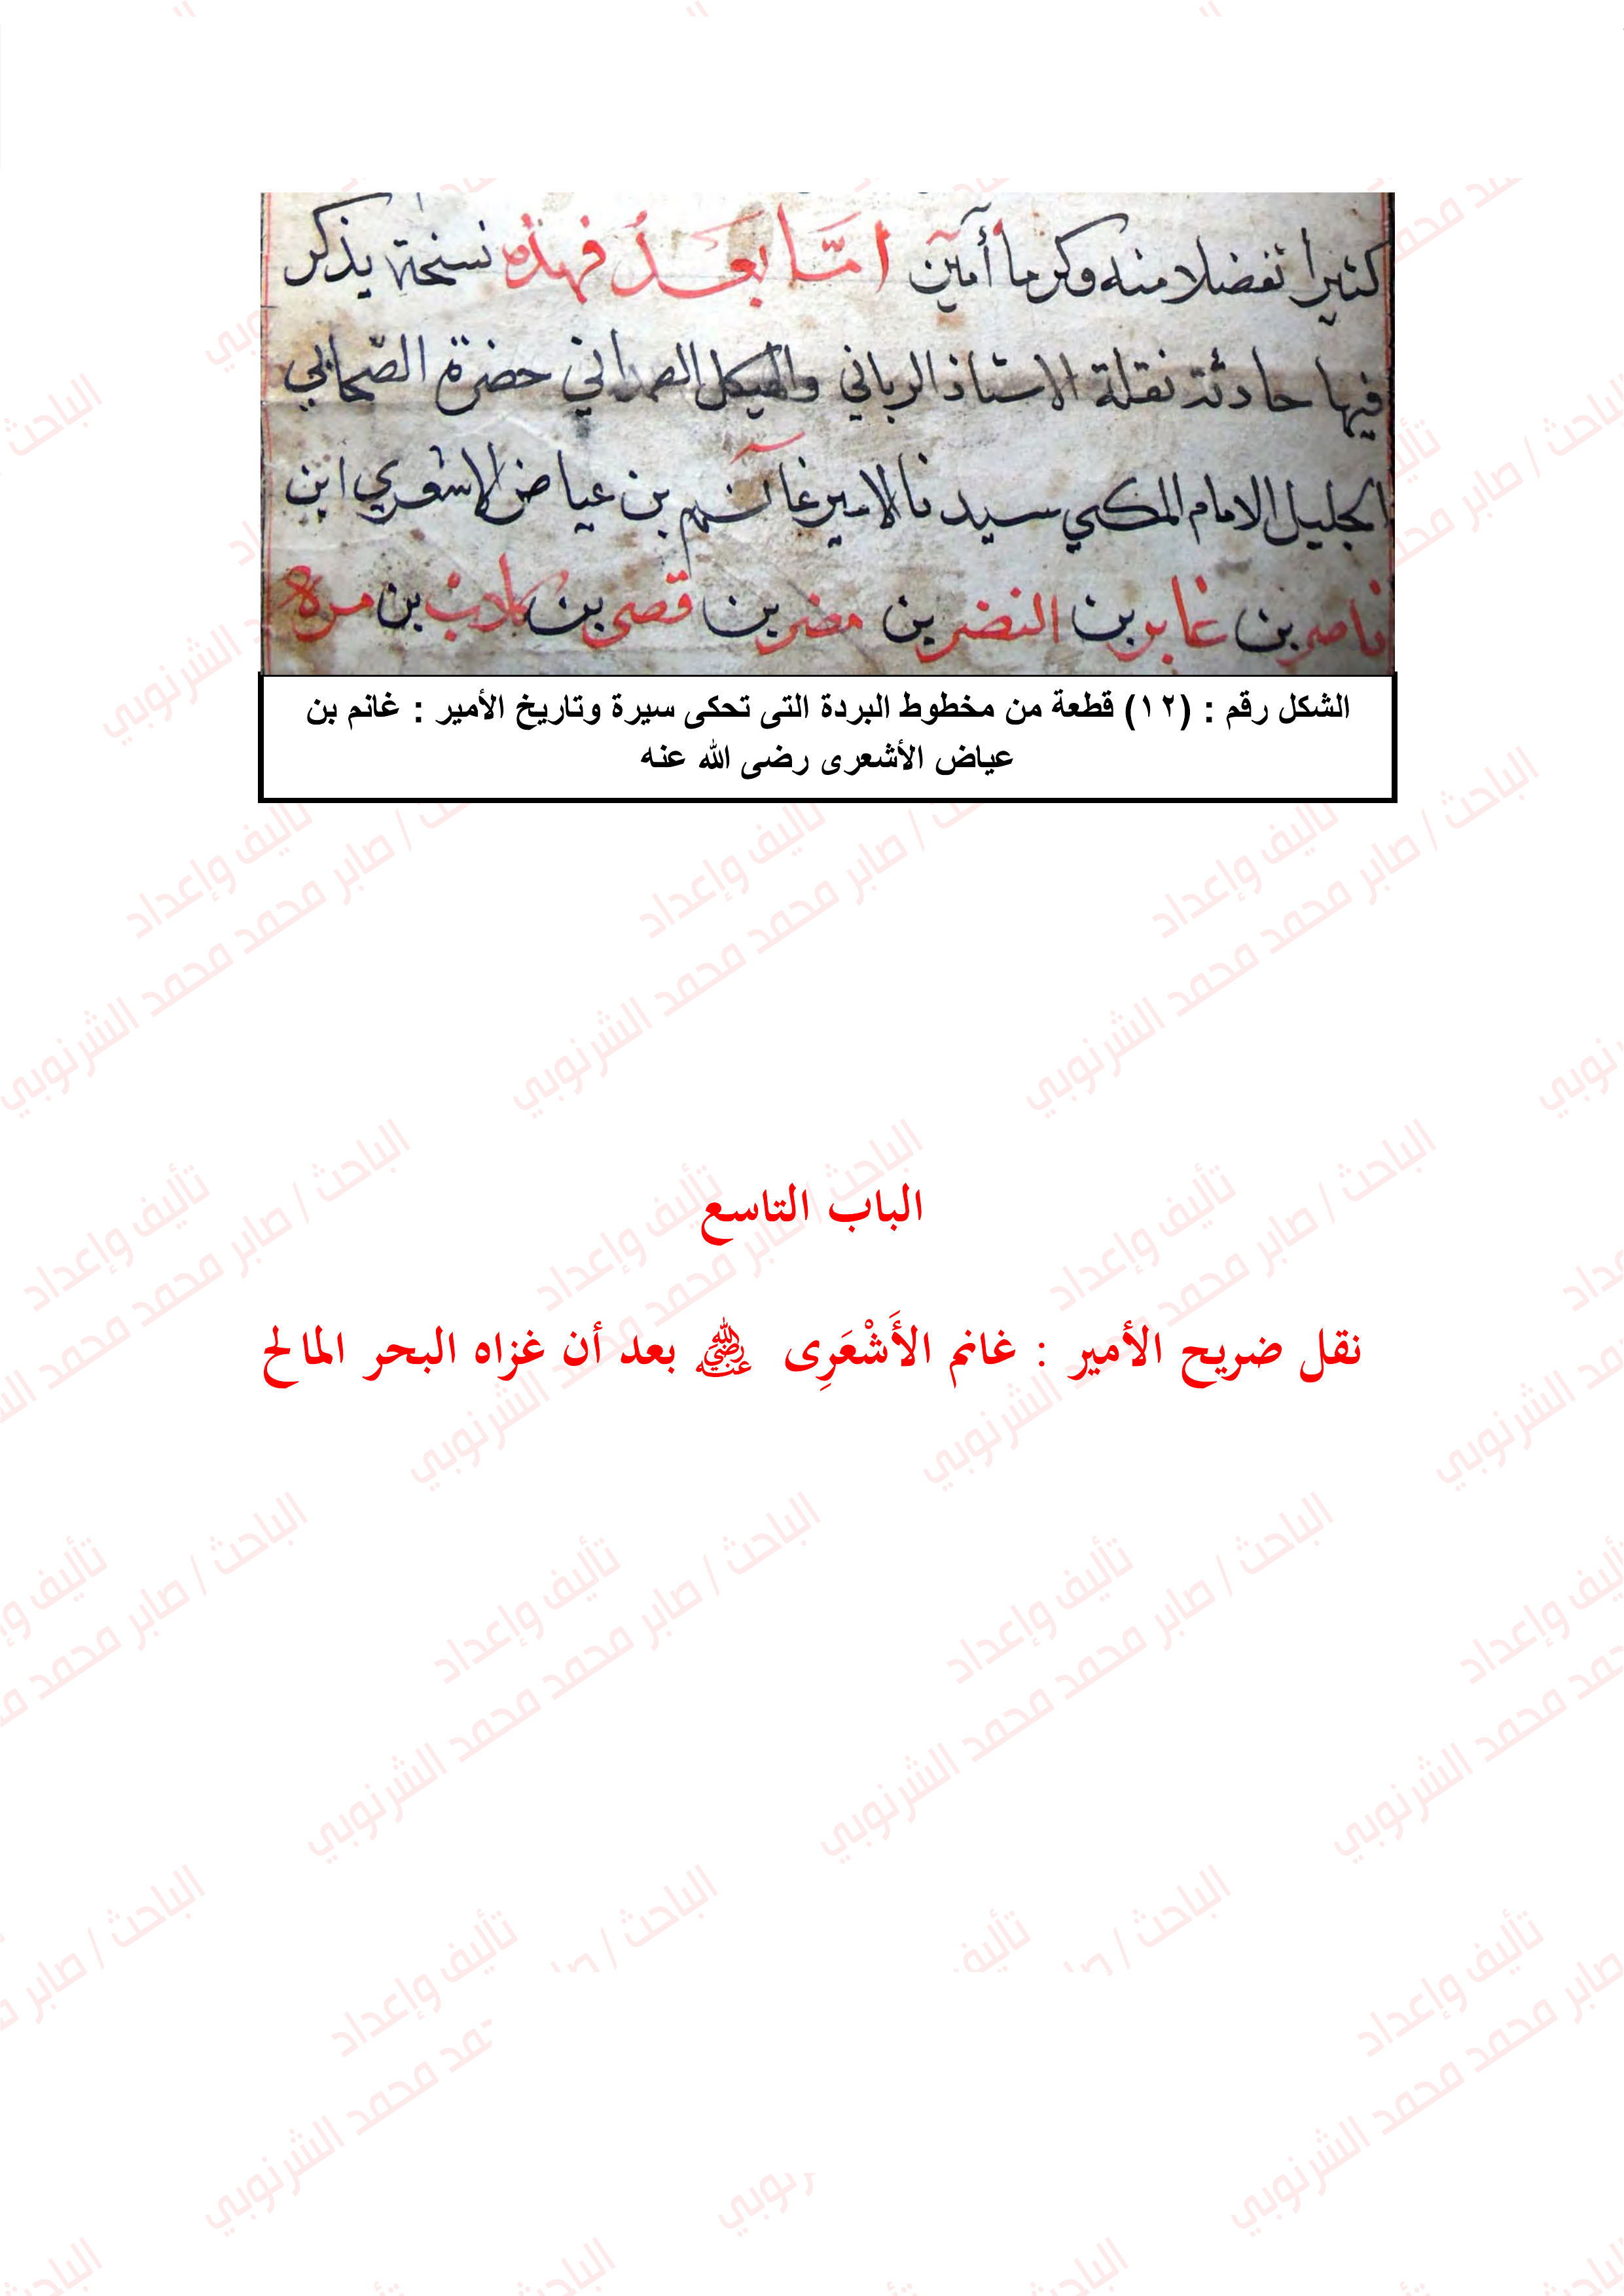 كثيرا تفضلا منه وكرما أمين امّا بَعَدُ فهذه نسخة يذكر
فيها حادثة نقلة الاستاذ الرباني والهيكل الصمداني حضرة الصّحابي
الجليل الامام المكي سيدنا الامير غانم بن عياض الاشعري ابن
ناصر بن غابر بن النضر بن مضر بن قصى بن كلاب بن مرة
الشكل رقم : (١٢) قطعة من مخطوط البردة التى تحكى سيرة وتاريخ الأمير : غانم بن
عياض الأشعرى رضى الله عنه
الباب التاسع
نقل ضريح الأمير : غانم الأَشْعَرِى رضي الله عنه بعد أن غزاه البحر المالح
تأليف وإعداد
الباحث / صابر محمد محمد الشرنوبي